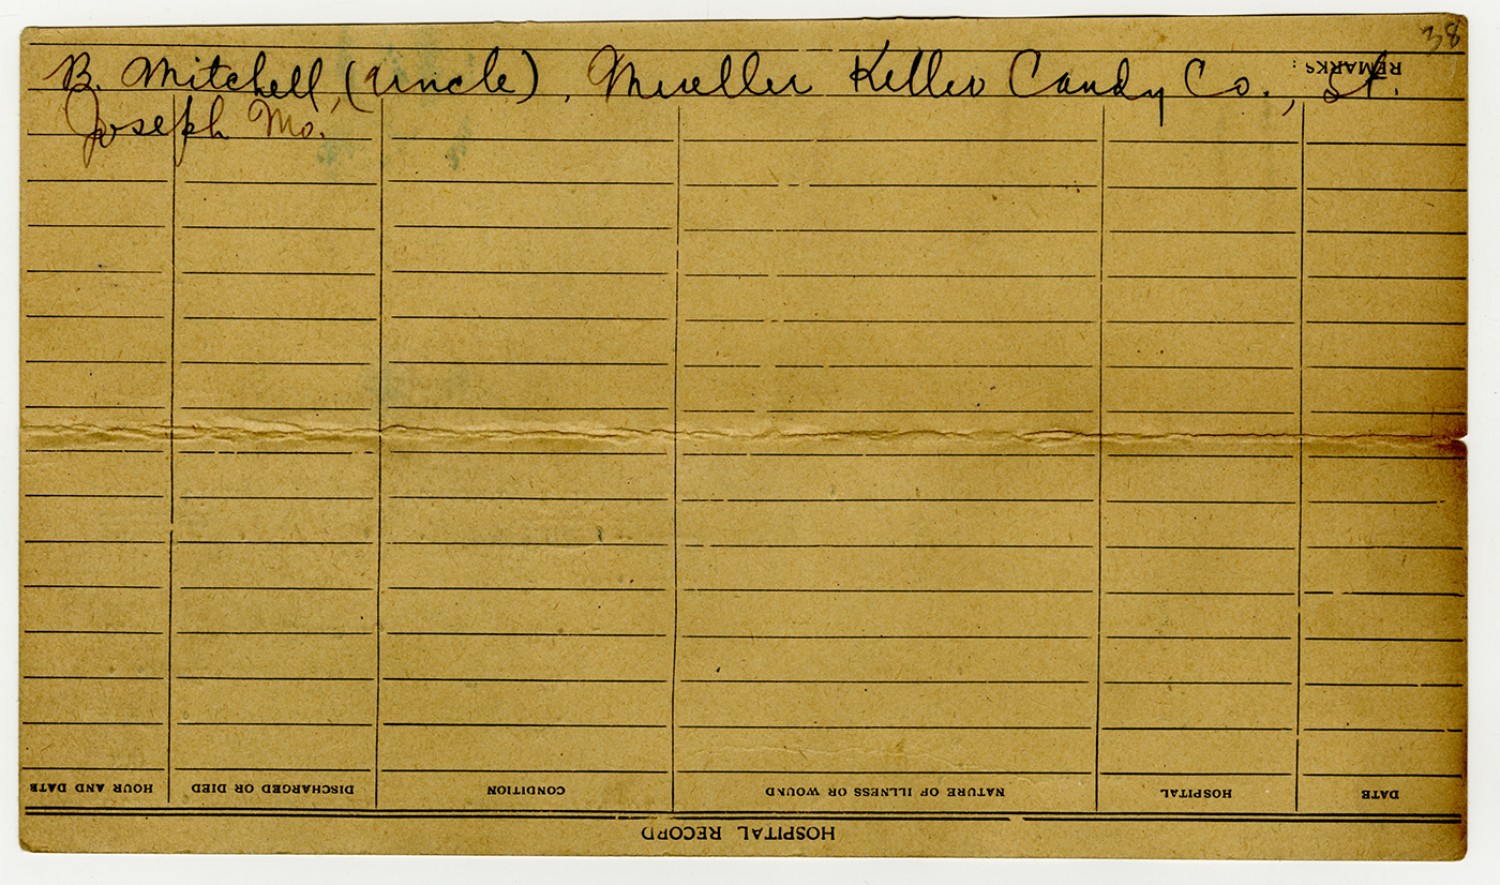 38
B. Mitchell, (Uncle), Mueller Keller Candy Co., St.
Joseph Mo.
REMARKS:
HOUR AND DATE DISCHARGED OR DIED CONDITION NATURE OF ILLNESS OR WOUND HOSPITAL DATE
HOSPITAL RECORD